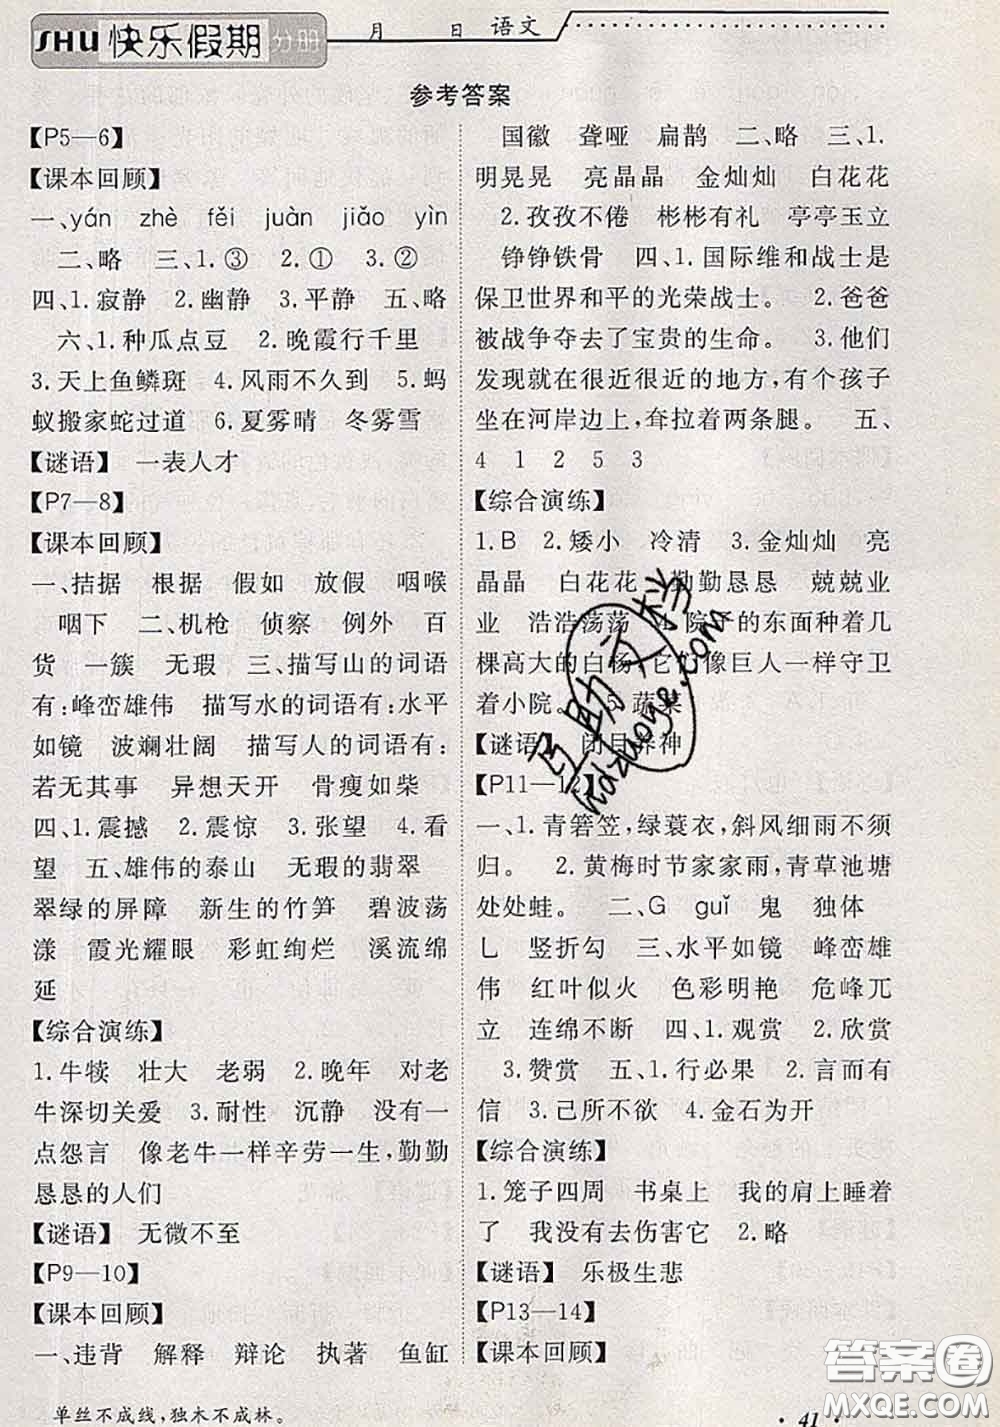 SHU 快乐假期 分册 月 日 语文
参考答案
【P5—6】
【课本回顾】
一、yán zhè fěi juàn jiǎo yìn
二、略 三、1.③ 2.① 3.②
四、1.寂静 2.幽静 3.平静 五、略
六、1.种瓜点豆 2.晚霞行千里
3.天上鱼鳞斑 4.风雨不久到 5.蚂
蚁搬家蛇过道 6.夏雾晴 冬雾雪
【谜语】 一表人才
【P7—8】
【课本回顾】
一、拮据 根据 假如 放假 咽喉
咽下 二、机枪 侦察 例外 百
货 一簇 无瑕 三、描写山的词语
有:峰峦雄伟 描写水的词语有:水平
如镜 波澜壮阔 描写人的词语有:
若无其事 异想天开 骨瘦如柴
四、1.震撼 2.震惊 3.张望 4.看
望 五、雄伟的泰山 无瑕的翡翠
翠绿的屏障 新生的竹笋 碧波荡
漾 霞光耀眼 彩虹绚烂 溪流绵
延
【综合演练】
1.牛犊 壮大 老弱 2.晚年 对老
牛深切关爱 3.耐性 沉静 没有一
点怨言 像老牛一样辛劳一生,勤勤
恳恳的人们
【谜语】 无微不至
【P9—10】
【课本回顾】
一、违背 解释 辩论 执著 鱼缸
单丝不成线,独木不成林。
国徽 聋哑 扁鹊 二、略 三、1.
明晃晃 亮晶晶 金灿灿 白花花
2.孜孜不倦 彬彬有礼 亭亭玉立
铮铮铁骨 四、1.国际维和战士是
保卫世界和平的光荣战士。 2.爸爸
被战争夺去了宝贵的生命。 3.他们
发现就在很近很近的地方,有个孩子
坐在河岸边上,耷拉着两条腿。 五、
4 1 2 5 3
【综合演练】
1.B 2.矮小 冷清 3.金灿灿 亮
晶晶 白花花 勤勤恳恳 兢兢业
业 浩浩荡荡 4.院子的东面种着几
棵高大的白杨,它们像巨人一样守卫
着小院。 5.蔬菜
【谜语】 闭目养神
【P11—12】
一、1.青箬笠,绿蓑衣,斜风细雨不须
归。 2.黄梅时节家家雨,青草池塘
处处蛙。 二、G guǐ 鬼 独体
乚 竖折勾 三、水平如镜 峰峦雄
伟 红叶似火 色彩明艳 危峰兀
立 连绵不断 四、1.观赏 2.欣赏
3.赞赏 五、1.行必果 2.言而有
信 3.己所不欲 4.金石为开
【综合演练】
1.笼子四周 书桌上 我的肩上睡着
了 我没有去伤害它 2.略
【谜语】 乐极生悲
【P13—14】
【课本回顾】
· 41 ·
互助文档
hdzuoye.com
答案圈
MXQE.COM